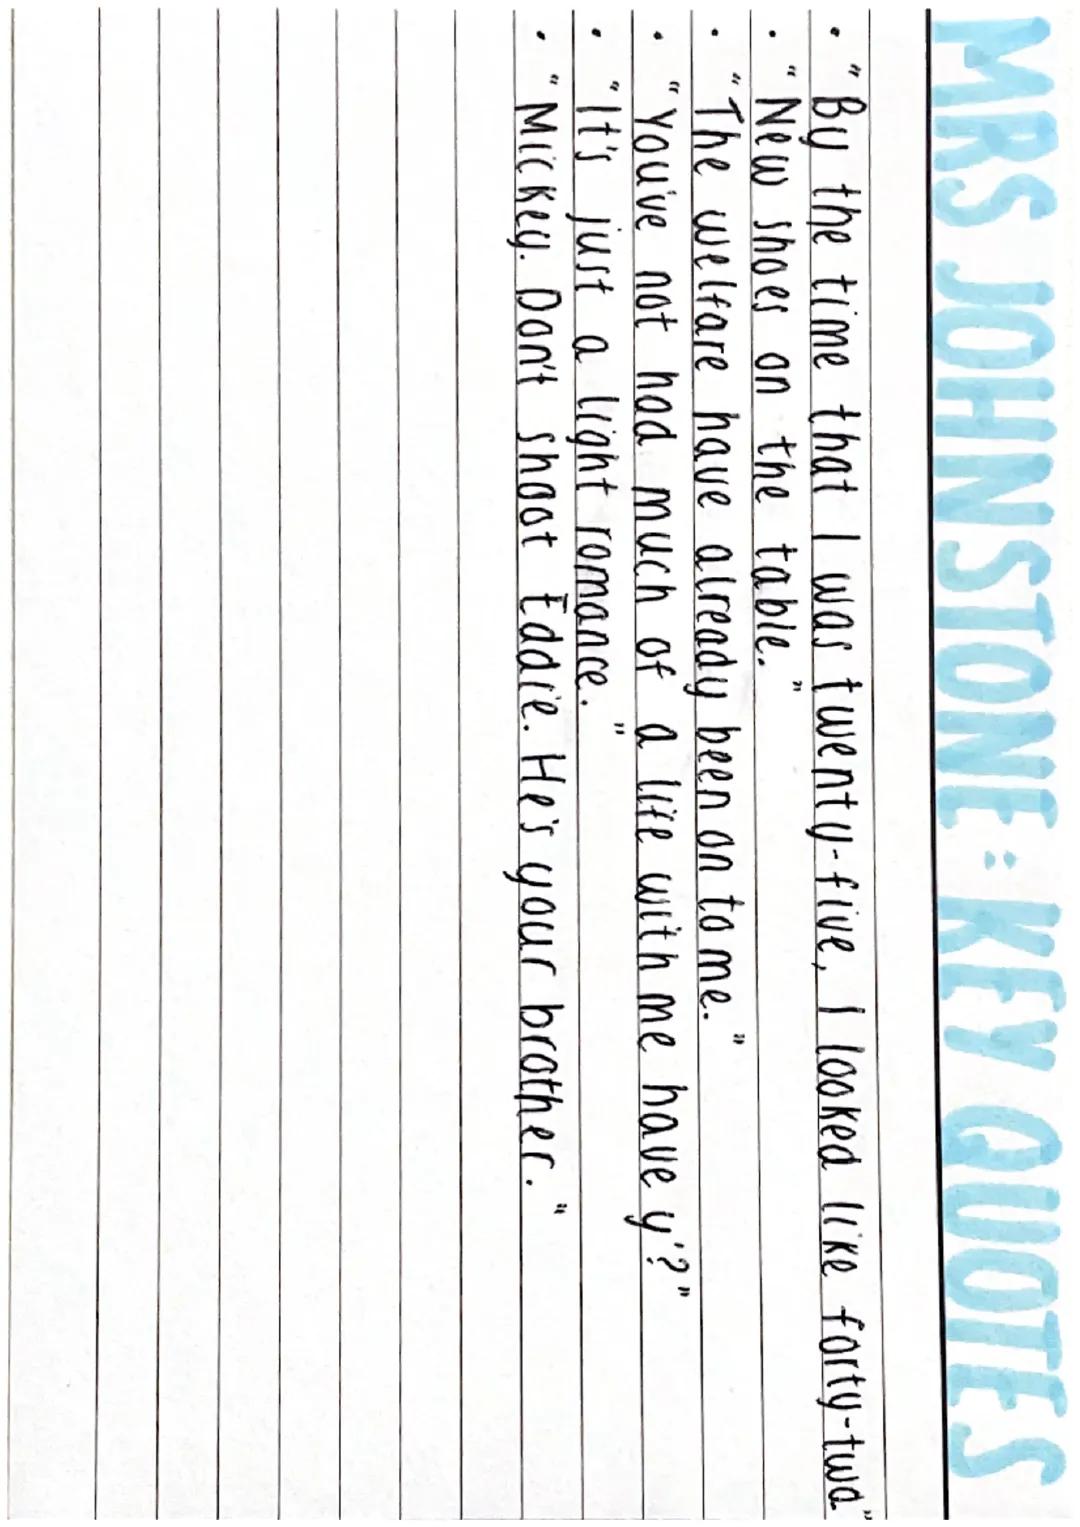 MRS JOHNSTONE: KEY QUOTES
• "By the time that I was twenty-five, I looked like forty-two"
• "New shoes on the table."
• "The welfare have already been on to me."
• "You've not had much of a life with me have y'?"
• "It's just a light romance."
• "Mickey. Don't shoot Eddie. He's your brother."